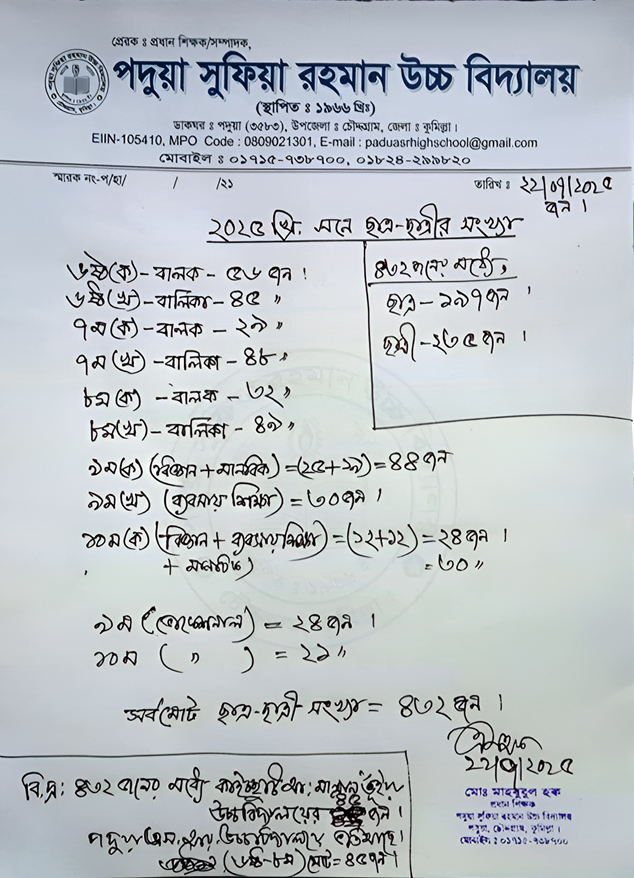 প্রেরক ঃ প্রধান শিক্ষক/সম্পাদক,
পদুয়া সুফিয়া রহমান উচ্চ বিদ্যালয়
(স্থাপিত ঃ ১৯৬৬ খ্রিঃ)
ডাকঘর ঃ পদুয়া (৩৫৮৩), উপজেলা ঃ চৌদ্দগ্রাম, জেলা ঃ কুমিল্লা।
EIIN-105410, MPO Code : 0809021301, E-mail : paduasrhighschool@gmail.com
মোবাইল ঃ ০১৭১৫-৭৩৮৭০০, ০১৮২৪-২৯৯৮২০
স্মারক নং-প/হা/ / /২১
তারিখ ঃ ২২/০৭/২০২৫
জন।
২০২৫ খ্রি. সনে ছাত্র-ছাত্রীর সংখ্যা
৬ষ্ঠ(ক) - বালক - ৫৬ জন।
৬ষ্ঠ(খ) - বালিকা - ৪৫ "
৭ম(ক) - বালক - ২৯ "
৭ম(খ) - বালিকা - ৪৮ "
৮ম(ক) - বালক - ৩২ "
৮ম(খ) - বালিকা - ৪৯ "
৪৩২ জনের মধ্যে,
ছাত্র - ১৯৭ জন।
ছাত্রী - ২৩৫ জন।
৯ম(ক) (বিজ্ঞান + মানবিক) = (২৫+১৯) = ৪৪ জন
৯ম(খ) (ব্যবসায় শিক্ষা) = ৩০ জন।
১০ম(ক) (বিজ্ঞান + ব্যবসায় শিক্ষা) = (১২+১২) = ২৪ জন।
+ মানবিক) = ৩০ "
৯ম (ভোকেশনাল) = ২৪ জন।
১০ম ( " ) = ২১ "
সর্বমোট ছাত্র-ছাত্রী সংখ্যা = ৪৩২ জন।
২২/০৭/২০২৫
মোঃ মাহবুবুল হক
প্রধান শিক্ষক
পদুয়া সুফিয়া রহমান উচ্চ বিদ্যালয়
পদুয়া, চৌদ্দগ্রাম, কুমিল্লা।
মোবাইল ঃ ০১৭১৫-৭৩৮৭০০
বি.দ্র: ৪৩২ জনের মধ্যে
উচ্চ বিদ্যালয়ের ৪৫ জন।
পদুয়া উচ্চ বিদ্যালয়ে
(৬ষ্ঠ-৮ম) মোট = ৪৫ জন।